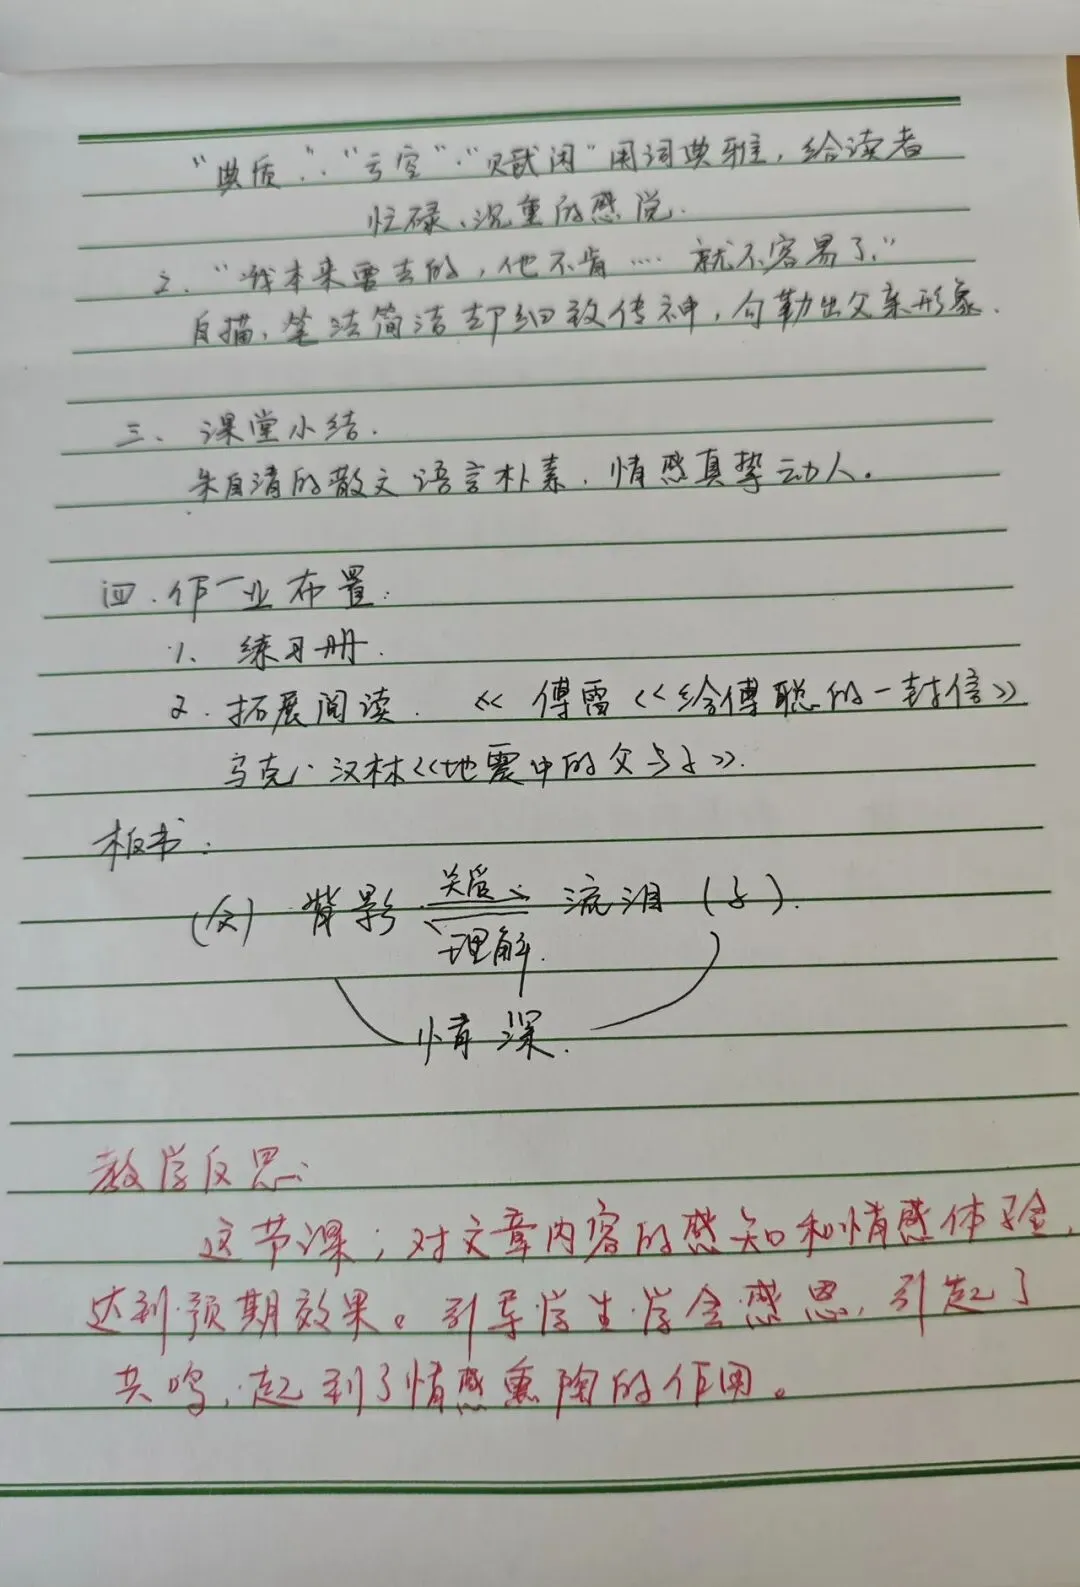 “典质”、“亏空”、“赋闲”用词典雅，给读者
忙碌、沉重的感觉.
2. “我本来要去的，他不肯…… 就不容易了.”
白描，笔法简洁却细致传神，勾勒出父亲形象.
三、课堂小结.
朱自清的散文语言朴素、情感真挚动人。
四.作业布置:
1、练习册.
2.拓展阅读. 《 傅雷《给傅聪的一封信》
马克·汉林《地震中的父与子》.
板书:
(父) 背影 关爱 流泪 (子).
理解.
情深.
教学反思:
这节课，对文章内容的感知和情感体验，
达到预期效果。引导学生学会感恩，引起了
共鸣，起到了情感熏陶的作用。